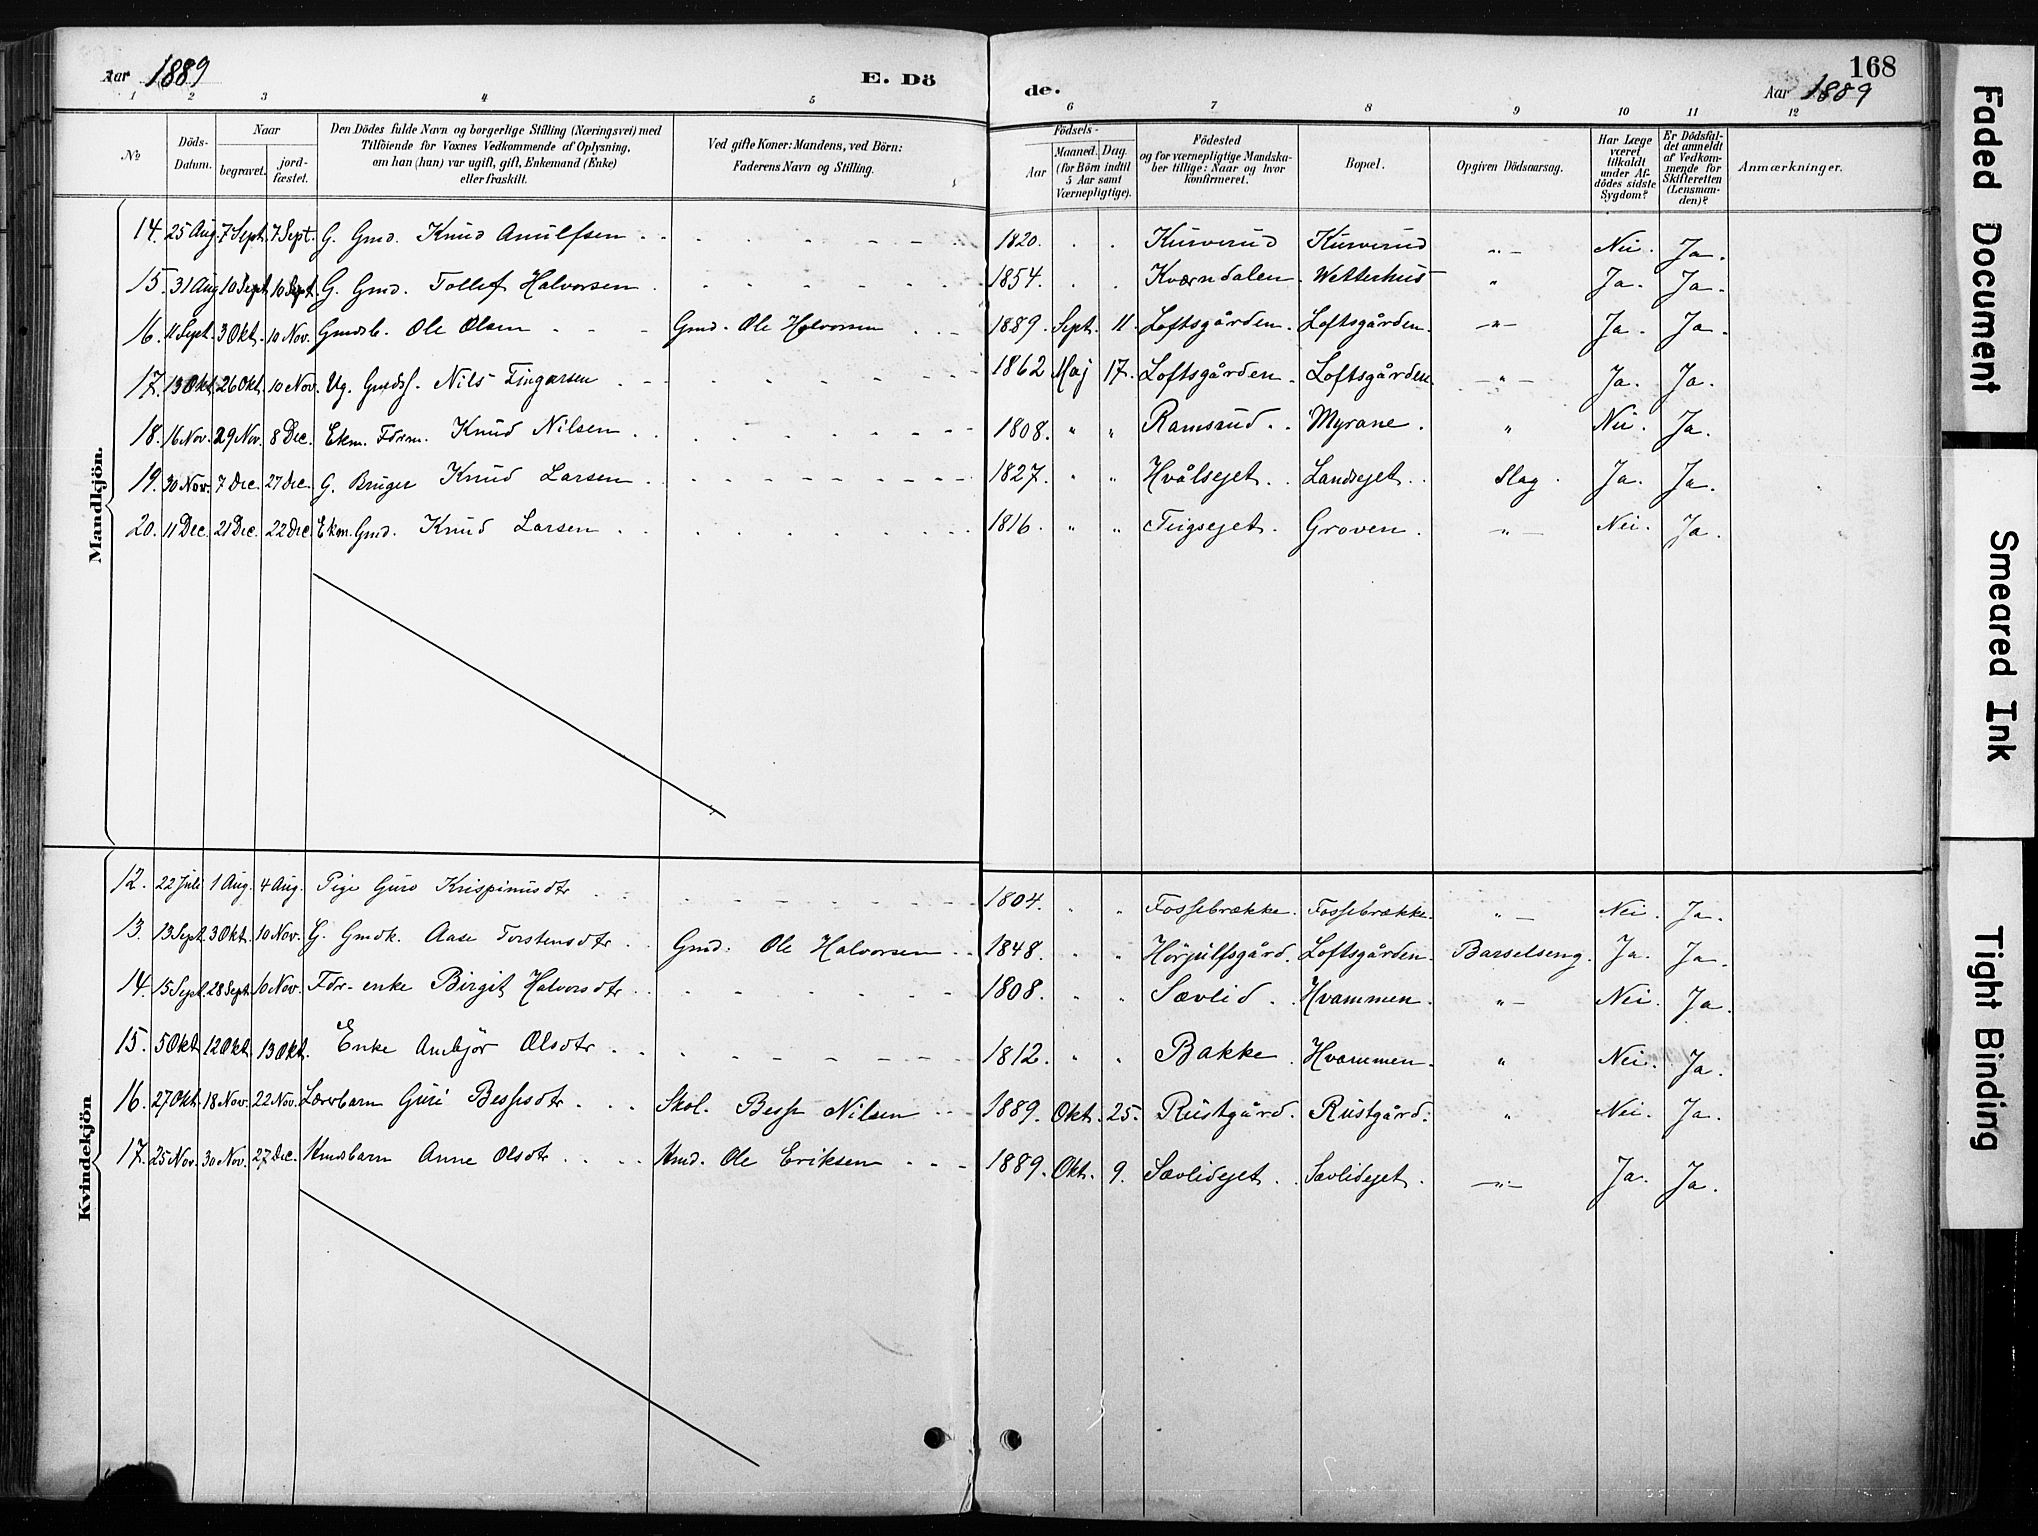 Aar 1889
E. Dö
de.
Aar 1889
168
1 2 3 4 5 6 7 8 9 10 11 12
No
Döds-Datum.
Naar
begravet.
jord-fæstet.
Den Dödes fulde Navn og borgerlige Stilling (Næringsvei) med Tilföiende for Voxnes Vedkommende af Oplysning, om han (hun) var ugift, gift, Enkemand (Enke) eller fraskilt.
Ved gifte Koner: Mandens, ved Börn: Faderens Navn og Stilling.
Födsels-
Aar
Maaned. Dag.
(for Börn indtil 5 Aar samt Værnepligtige).
Födested og for værnepligtige Mandska-ber tillige: Naar og hvor konfirmeret.
Bopæl.
Opgiven Dödsaarsag.
Har Læge været tilkaldt under Af-dödes sidste Sygdom?
Er Dödsfal-det anmeldt af Vedkom-mende for Skifteretten (Lensman-den)?
Anmærkninger.
Mandkjön.
14. 25 Aug. 7 Sept. 7 Sept. G. Gmd. Knud Arnulfsen 1820. Kurverud Kurverud " Nei. Ja.
15. 31 Aug 10 Sept 10 Sept. G. Gmd. Tollef Halvorsen 1854. Kværndalen. Wetterhus " Ja. Ja.
16. 11 Sept. 3 Okt. 10 Nov. Gmdsb. Ole Olsen Gmd. Ole Halvorsen 1889. Sept. 11. Loftsgården. Loftsgården. " Ja. Ja.
17. 13 Okt. 26 Okt. 10 Nov. Ug. Gmdss. Nils Fingarsen 1862 Maj 17. Loftsgården. Loftsgården. " Ja. Ja.
18. 16 Nov. 29 Nov. 8 Dec. Ekm. Fdrm. Knud Nilsen 1808. " " Ramsrud. Myrane. " Nei. Ja.
19. 30 Nov. 7 Dec. 27 Dec. G. Bruger Knud Larsen 1827. " " Hvålsejet. Landsejet. Slag. Ja. Ja.
20. 11 Dec. 21 Dec. 22 Dec. Ekm. Gmd. Knud Larsen 1816. " " Teigsejet. Groven. " Nei. Ja.
Kvindekjön
12. 22 Juli 1 Aug. 4 Aug. Pige Guro Krispinusdtr 1804. " " Fossebrække. Fossebrække. " Nei. Ja.
13. 13 Sept. 3 Okt. 10 Nov. G. Gmdk. Aase Torstensdtr Gmd. Ole Halvorsen 1848. " " Hørjulfsgård. Loftsgården. Barselseng. Ja. Ja.
14. 15 Sept. 28 Sept. 10 Nov. Fdr-enke Birgit Halvorsdtr 1808. " " Sævlid. Hvammen. " Nei. Ja.
15. 5 Okt. 12 Okt. 13 Okt. Enke Ambjør Olsdtr 1812. " " Bakke. Hvammen. " Nei. Ja.
16. 27 Okt. 18 Nov. 22 Nov. Lærrbarn Guri Bessesdtr Skol. Besse Nilsen 1889. Okt. 25. Rustgård. Rustgård. " Nei. Ja.
17. 25 Nov. 30 Nov. 27 Dec. Hmdsbarn Anne Olsdtr Hmd. Ole Eriksen 1889. Okt. 9. Sævlidejet. Sævlidejet. " Ja. Ja.
Faded Document
Smeared Ink
Tight Binding